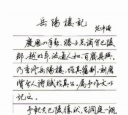 岳阳楼记
范仲淹
庆历四年春，滕子京谪守巴陵
郡。越明年，政通人和，百废具兴。
乃重修岳阳楼，增其旧制，刻唐
贤今人诗赋于其上，属予作文以
记之。
予观夫巴陵胜状，在洞庭一湖